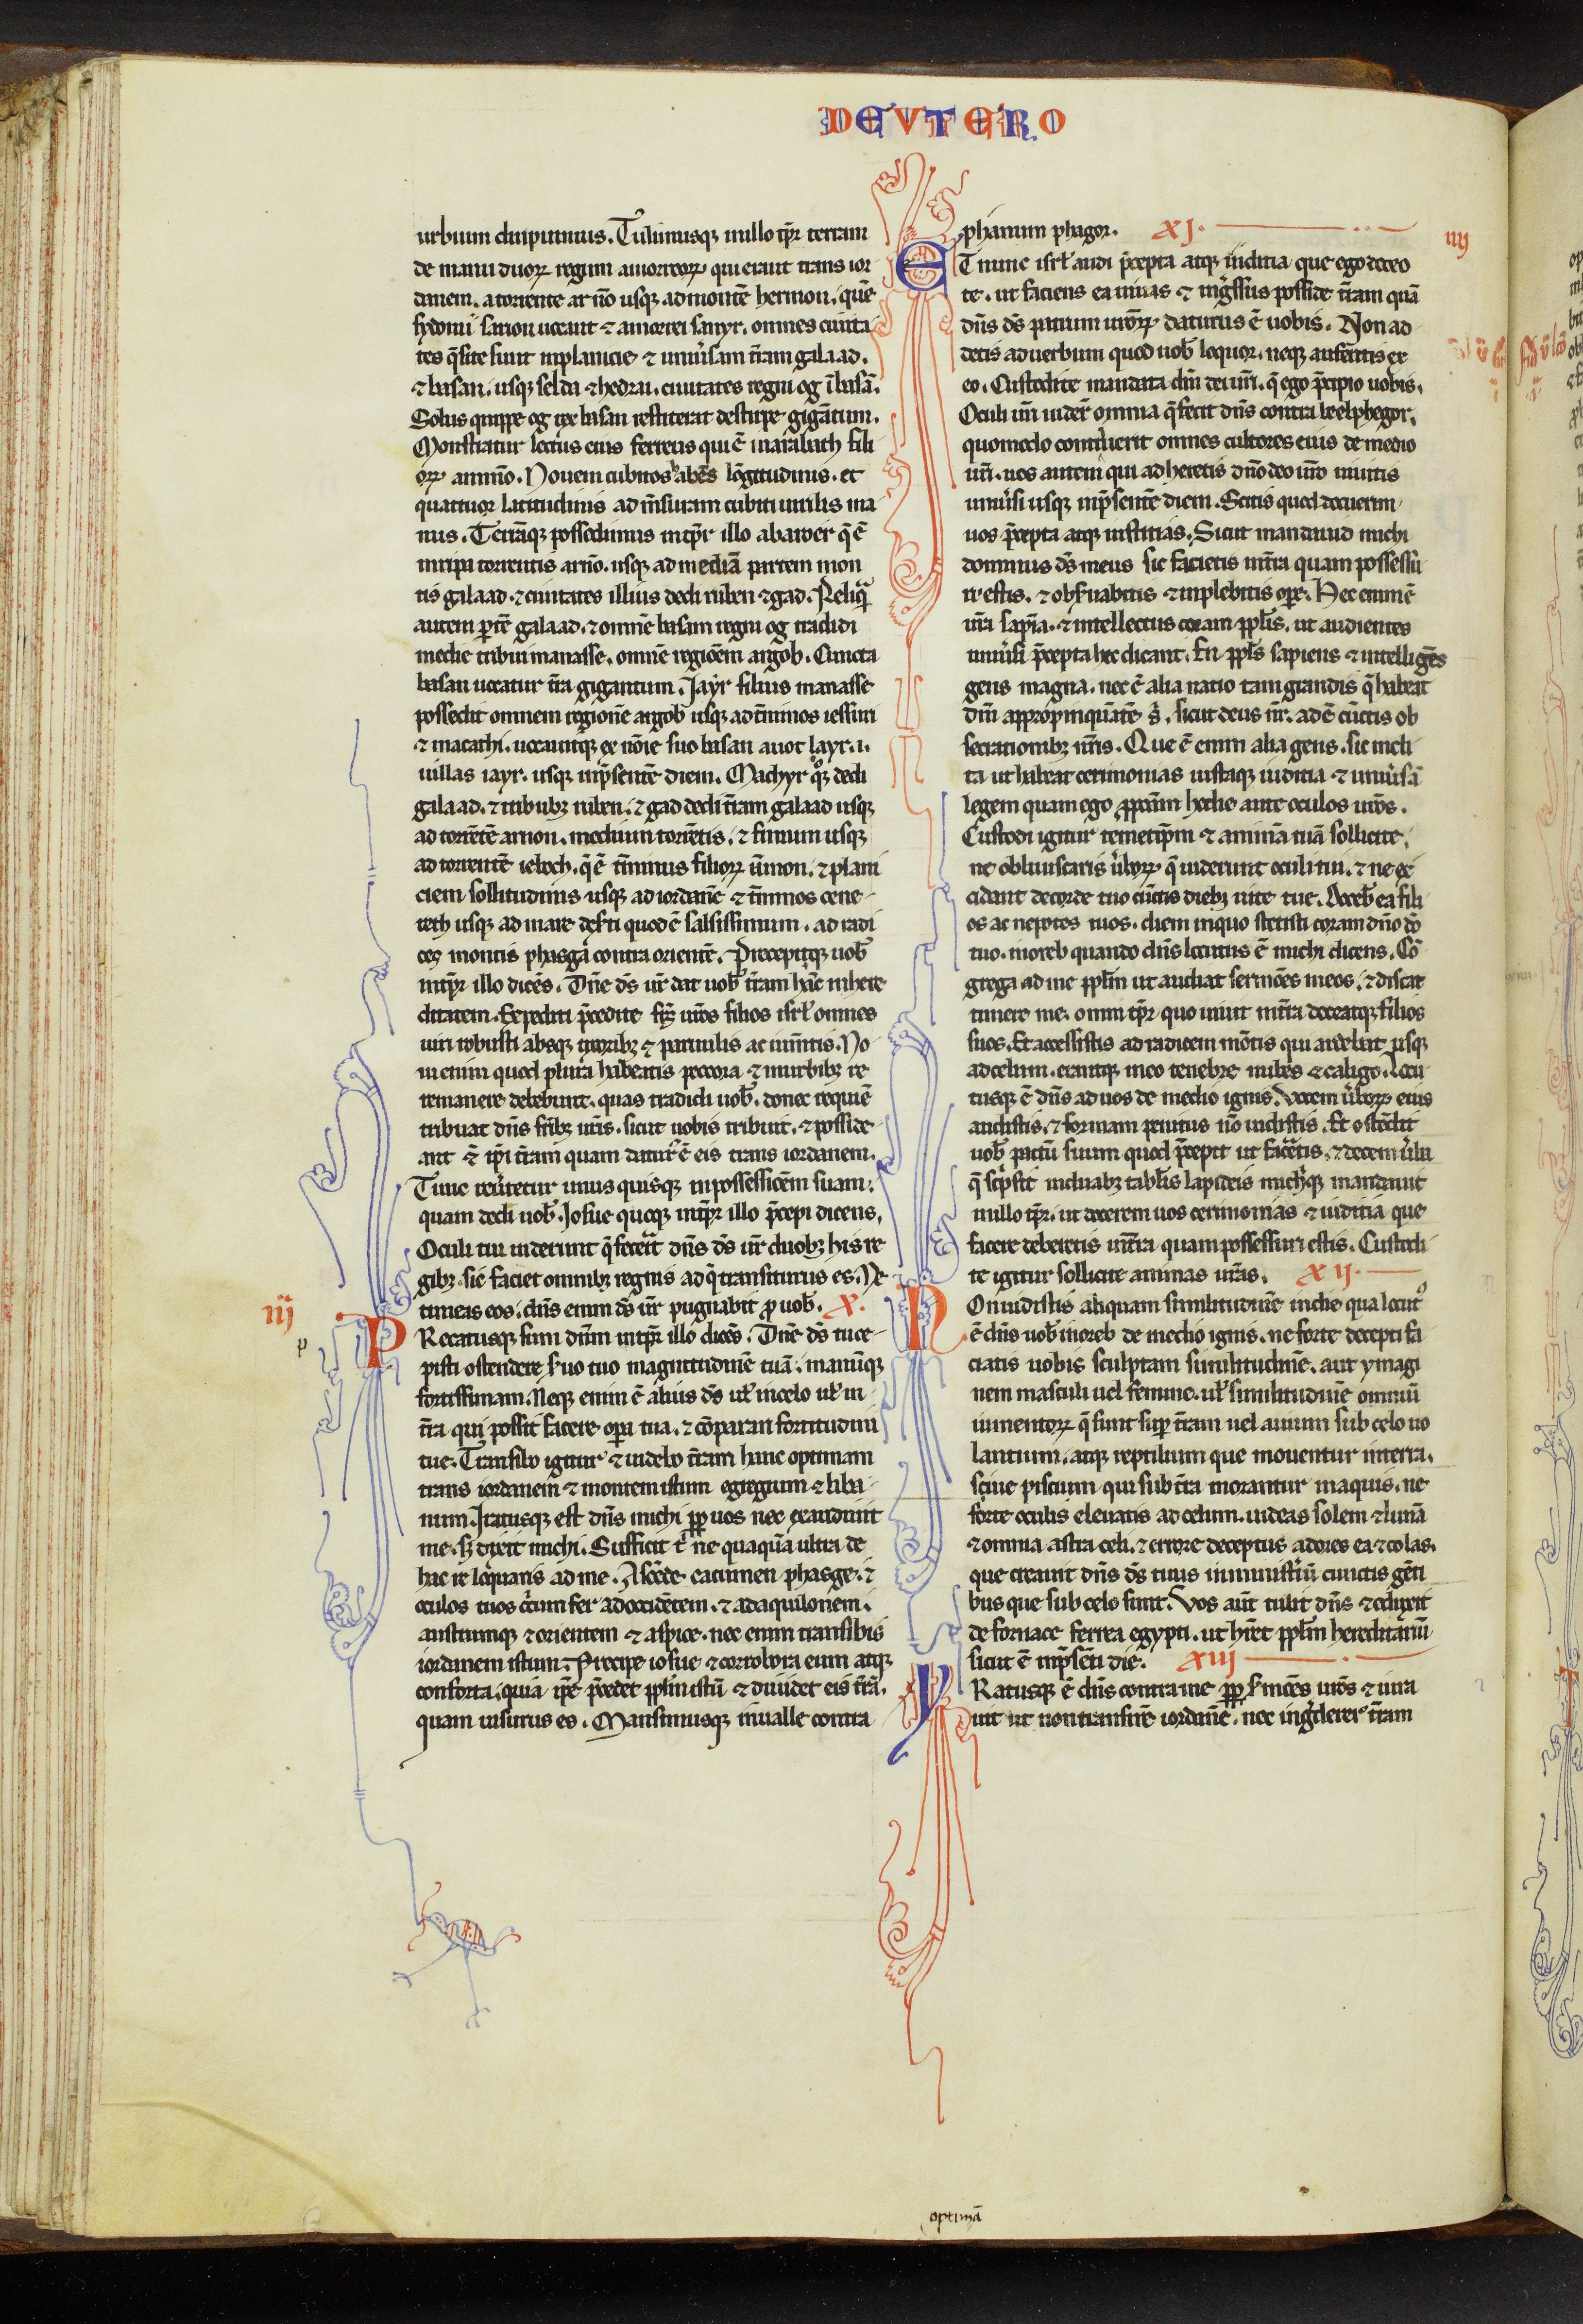 DEUTERO
urbium diripuimus. Tulimusqꝫ in illo tp̄r terram
de manu duoꝝ regum amorreoꝝ qui erant trans ior
danem. a torrente arnō usqꝫ ad montē hermon. quē
sydonii sarion uocant ⁊ amorrei sanyr. omnes ciuita
tes q̄ site sunt in planicie ⁊ uniu̾sam t̄ram galaad.
⁊ basan. usqꝫ selcha ⁊ hedrai. ciuitates regni og ī basā.
Solus quippe og rex basan restiterat de stirpe gigātum.
Monstratur lectus eius ferreus qui ē in rabath fili
oꝝ ammō. Nouem cubitos habēs lōgitudinis. et
quattuor latitudinis ad m̄suram cubiti uirilis ma
nus. Terrāqꝫ possedimus in tp̄r illo ab aroer q̄ ē
in ripa torrentis arnō. usqꝫ ad mediā partem mon
tis galaad. ⁊ ciuitates illius dedi ruben ⁊ gad. Reliquā
autem p̱tē galaad. ⁊ omnē basan regni og tradidi
medie tribui manasse. omnē regiōem argob. Cuncta
basan uocatur t̄ra gigantum. Jayr filius manasse
possedit omnem regionē argob usqꝫ ad t̄minos iessuri
⁊ macathi. uocauitqꝫ ex nōie suo basan auot Iayr. i.
uillas iayr. usqꝫ in p̄sentē diem. Machyr qͦqꝫ dedi
galaad. ⁊ tribubꝫ ruben. ⁊ gad dedi t̄ram galaad usqꝫ
ad torrētē arnon. medium torrētis. ⁊ finium usqꝫ
ad torrentē ieboch. q̄ ē t̄minus filioꝝ āmon. ⁊ plani
ciem sollitudinis usqꝫ ad iordanē ⁊ t̄minos cene
reth usqꝫ ad mare des̾ti quod ē salsissimum. ad radi
ces montis phasga contra orientē. Precepitqꝫ uob̄
in tp̄r illo dicēs. Dn̄s ds̄ ur̄ dat uob̄ t̄ram hāc in here
ditatem. Expediti p̄cedite fr̄s uros filios isrl̄ omnes
uiri robusti absqꝫ uxoribꝫ ⁊ paruulis ac iumtīs. No
ui enim quod plura habeatis peccora ⁊ in urbibꝫ re
remanere debebunt. quas tradidi uob̄. donec requiē
tribuat dn̄s fr̄ibꝫ ur̄is. sicut uobis tribuit. ⁊ posside
ant ⁊ ip̄i t̄ram quam daturꝰ ē eis trans iordanem.
Tunc reu̾tetur unus quisqꝫ in possessiōem suam.
quam dedi uob̄. Josue quoqꝫ in tp̄r illo p̄cepi dicens.
Oculi tui uiderunt q̄ fecerit dn̄s ds̄ ur̄ duobꝫ his re
gibꝫ. sic faciet omnibꝫ regnis ad q̄ transiturus es. Ne
timeas eos. dn̄s enim ds̄ ur̄ pugnabit ꝓ uob̄. X.
iij
p
PRecatusqꝫ sum dn̄m in tp̄r illo dicēs. Dn̄e ds̄ tu ce
pisti ostendere s̾uo tuo magnitudinē tuā. manūqꝫ
fortissimam. Neqꝫ enim ē alius ds̄ ul̄ in celo ul̄ in
t̄ra qui possit facere opa̱ tua. ⁊ cōparari fortitudini
tue. Transibo igitur ⁊ uidebo t̄ram hanc optimam
trans iordanem ⁊ montem istum egregium ⁊ liba
num. Iratusqꝫ est dn̄s michi ꝓꝑ uos nec exaudiuit
me. sꝫ dixit michi. Sufficit tͥ ne quaquā ultra de
hac re loquaris ad me. Ascēde cacumen phasge. ⁊
oculos tuos circumfer ad occidētem. ⁊ ad aquilonem.
austrumqꝫ ⁊ orientem ⁊ aspice. nec enim transibis
iordanem istum. Precipe iosue ⁊ corrobora eum atqꝫ
conforta. quia ip̄e p̄cedet ppl̄m istū ⁊ diuidet eis t̄rā.
quam uisurus es. Mansimusqꝫ in ualle contra
phanum phagor. XJ.
iiij
ET nunc isrl̄ audi p̄cepta atqꝫ iuditia que ego doceo
te. ut faciens ea uiuas ⁊ ingr̄ssus posside t̄ram quā
dn̄s ds̄ patrum uroꝝ daturus ē uobis. Non ad
detis ad uerbum quod uob̄ loquor. neqꝫ auferetis ex
eo. Custodite mandata dn̄i dei ur̄i. q̄ ego p̄cipio uobis.
Oculi ur̄i uider̄ omnia q̄ fecit dn̄s contra beelphegor.
quomodo contriuerit omnes cultores eius de medio
ur̄i. uos autem qui adheretis dn̄o deo ur̄o uiuitis
uniu̾si usqꝫ in p̄sentē diem. Scitis quod docuerim
uos p̄cepta atqꝫ iustitias. Sicut mandauid michi
dominus ds̄ meus sic facietis in t̄ra quam possessu
ri estis. ⁊ obs̾uabitis ⁊ inplebitis ope̱. Hec enim ē
ur̄a sapīa. ⁊ intellectus coram ppl̄is. ut audientes
uniu̾si p̄cepta hec dicant. En ppl̄s sapiens ⁊ intelligēs
gens magna. nec ē alia natio tam grandis q̄ habeat
dm̄ appropinquātē s̾. sicut deus nr̄. adē cūctis ob
secrationibꝫ nr̄is. Que ē enim alia gens. sic incli
ta ut habeat cerimonias iustaqꝫ iuditia ⁊ uniu̾sā
legem quam ego ꝓponā hodie ante oculos uros.
Custodi igitur temetip̄m ⁊ animā tuā sollicite.
ne obliuiscaris u̾boꝝ q̄ uiderunt oculi tui. ⁊ ne ex
cidant de corde tuo cūctis diebꝫ uite tue. Doceb̄ ea fili
os ac nepotes tuos. diem in quo stetisti coram dn̄o dō
tuo. in oreb quando dn̄s locutus ē michi dicens. Cō
grega ad me ppl̄m ut audiat sermōes meos. ⁊ discat
timere me. omni tp̄r quo uiuit in t̄ra doceatqꝫ filios
suos. Et accessistis ad radicem mōtis qui ardebat usqꝫ
ad celum. erantqꝫ in eo tenebre nubes ⁊ caligo. Locu
tusqꝫ ē dn̄s ad uos de medio ignis. Vocem u̾boꝝ eius
audistis. ⁊ formam penitus nō uidistis. Et ostēdit
uob̄ pactū suum quod p̄cepit ut faceretis. ⁊ decem u̾ba
q̄ scripsit in duabꝫ tabl̄is lapideis michiqꝫ mandauit
in illo tp̄r. ut docerem uos cerimonias ⁊ iuditia que
facere deberetis in t̄ra quam possessuri estis. Custodi
te igitur sollicite animas uras. XIJ.
NOn uidistis aliquam similitudinē in die qua locutꝰ
ē dn̄s uob̄ in oreb de medio ignis. ne forte decepti fa
ciatis uobis sculptam similitudinē. aut ymagi
nem masculi uel femine. ul̄ similitudinē omniū
iumentoꝝ q̄ sunt sup̱ t̄ram uel auium sub celo uo
lantium. atqꝫ reptilium que mouentur in terra.
siue piscium qui sub t̄ra morantur in aquis. ne
forte oculis eleuatis ad celum. uideas solem ⁊ lunā
⁊ omnia astra celi. ⁊ errore deceptus adores ea ⁊ colas.
que creauit dn̄s ds̄ tuus in ministeriū cunctis gēti
bus que sub celo sunt. Vos aut̄ tulit dn̄s ⁊ eduxit
de fornace ferrea egypti. ut hr̄et ppl̄m hereditariū
sicut ē in p̄sēti die. XIIJ
IRatusqꝫ ē dn̄s contra me ꝓꝑ s̾mōes uros ⁊ iura
uit ut non transirē iordanē. nec ingrederer t̄ram
optimā